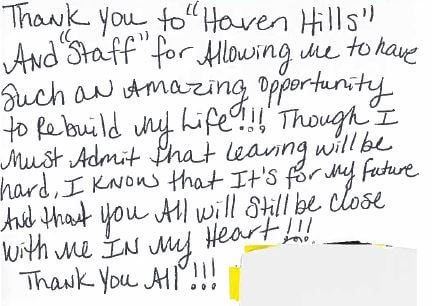 Thank you to "Haven Hills"
And "Staff" for Allowing Me to have
Such an Amazing Opportunity
to Rebuild My Life!!! Though I
Must Admit that leaving will be
hard, I know that It's for My future
And that you All will Still be Close
With Me In My Heart!!!
Thank You All!!!